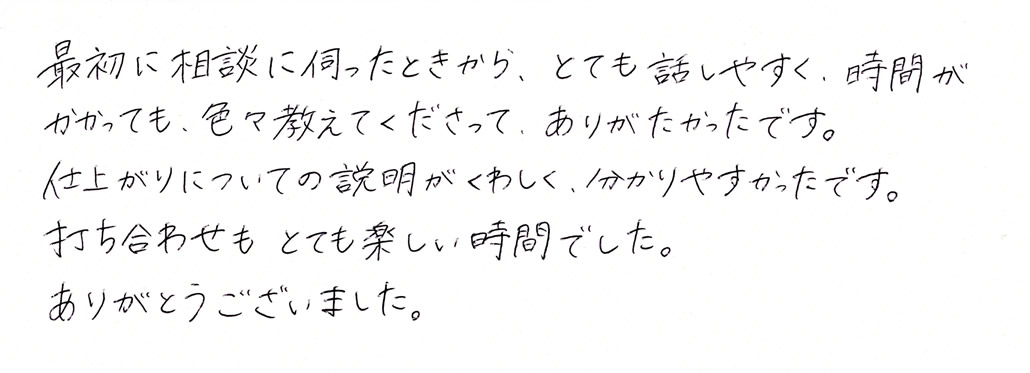 最初に相談に伺ったときから、とても話しやすく、時間が
かかっても、色々教えてくださって、ありがたかったです。
仕上がりについての説明がくわしく、分かりやすかったです。
打ち合わせもとても楽しい時間でした。
ありがとうございました。